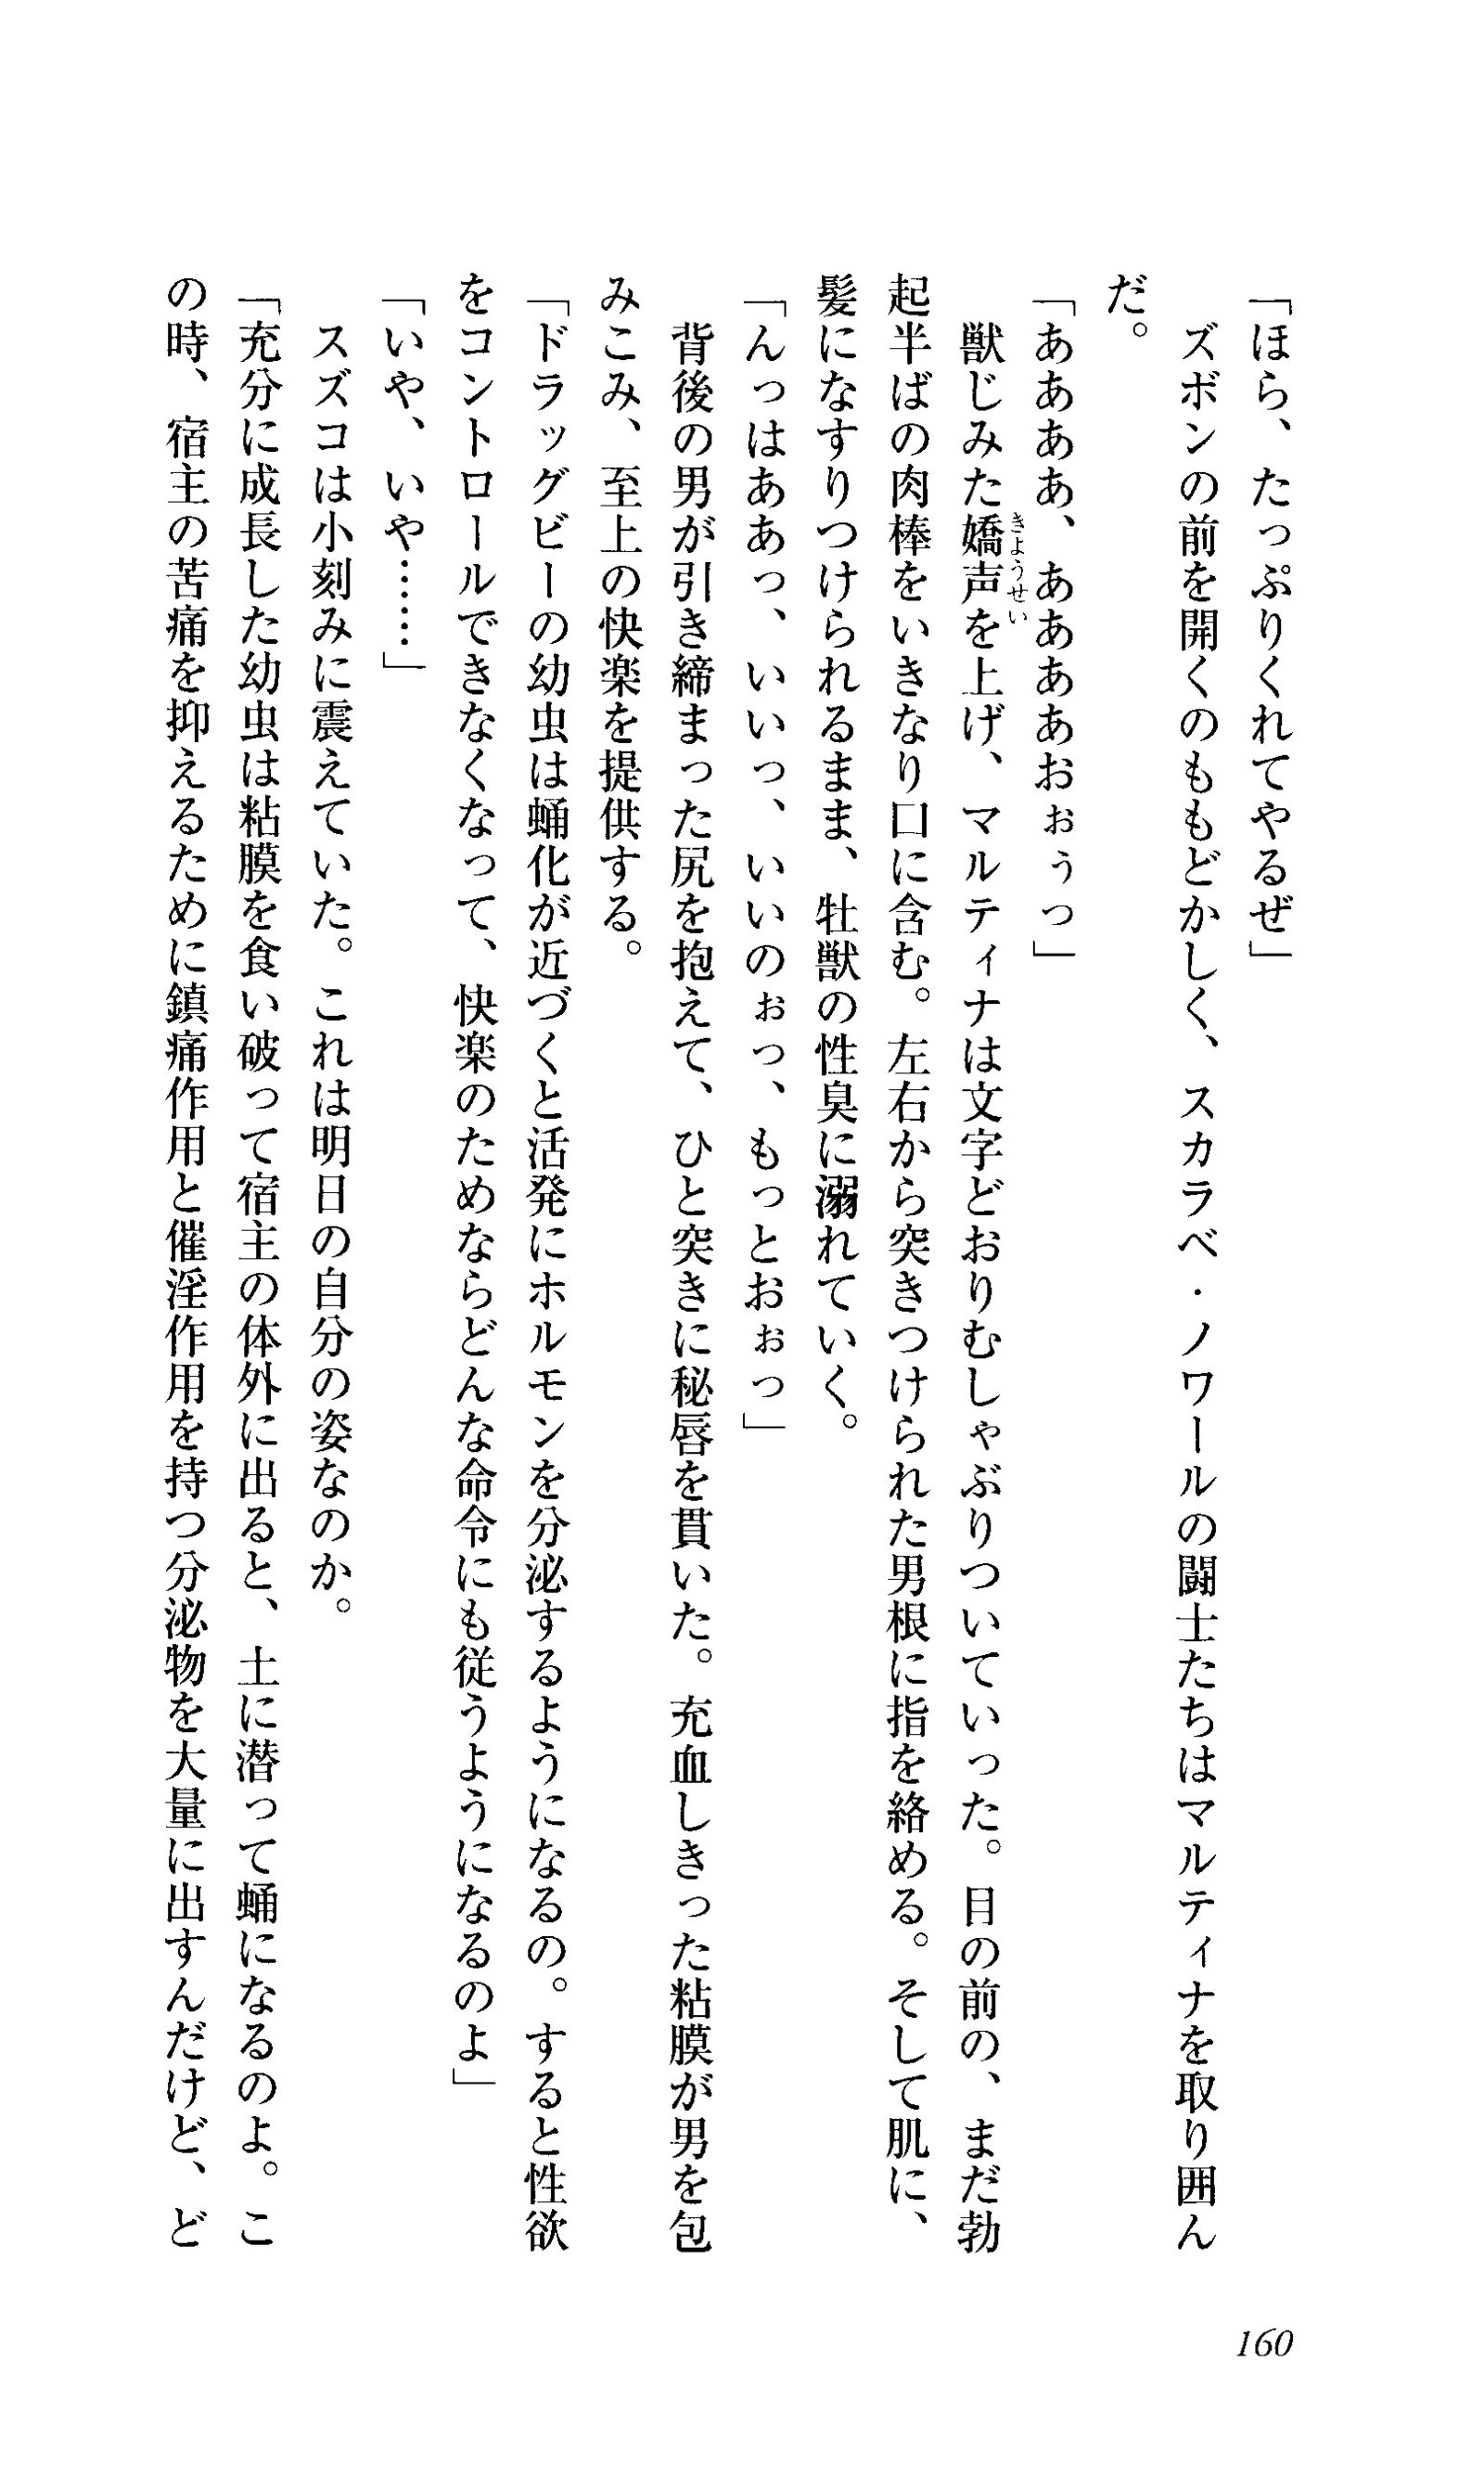 「ほら、たっぷりくれてやるぜ」
ズボンの前を開くのももどかしく、スカラベ・ノワールの闘士たちはマルティナを取り囲ん
だ。
「ああああ、ああああおぉぅっ」
獣じみた嬌声を上げ、マルティナは文字どおりむしゃぶりついていった。目の前の、まだ勃
きようせい
起半ばの肉棒をいきなり口に含む。左右から突きつけられた男根に指を絡める。そして肌に、
髪になすりつけられるまま、牡獣の性臭に溺れていく。
「んっはああっ、いいっ、いいのぉっ、もっとおぉっ」
背後の男が引き締まった尻を抱えて、ひと突きに秘唇を貫いた。充血しきった粘膜が男を包
みこみ、至上の快楽を提供する。
「ドラッグビーの幼虫は蛹化が近づくと活発にホルモンを分泌するようになるの。すると性欲
をコントロールできなくなって、快楽のためならどんな命令にも従うようになるのよ」
「いや、いや……」
スズコは小刻みに震えていた。これは明日の自分の姿なのか。
「充分に成長した幼虫は粘膜を食い破って宿主の体外に出ると、土に潜って蛹になるのよ。こ
の時、宿主の苦痛を抑えるために鎮痛作用と催淫作用を持つ分泌物を大量に出すんだけど、ど
160